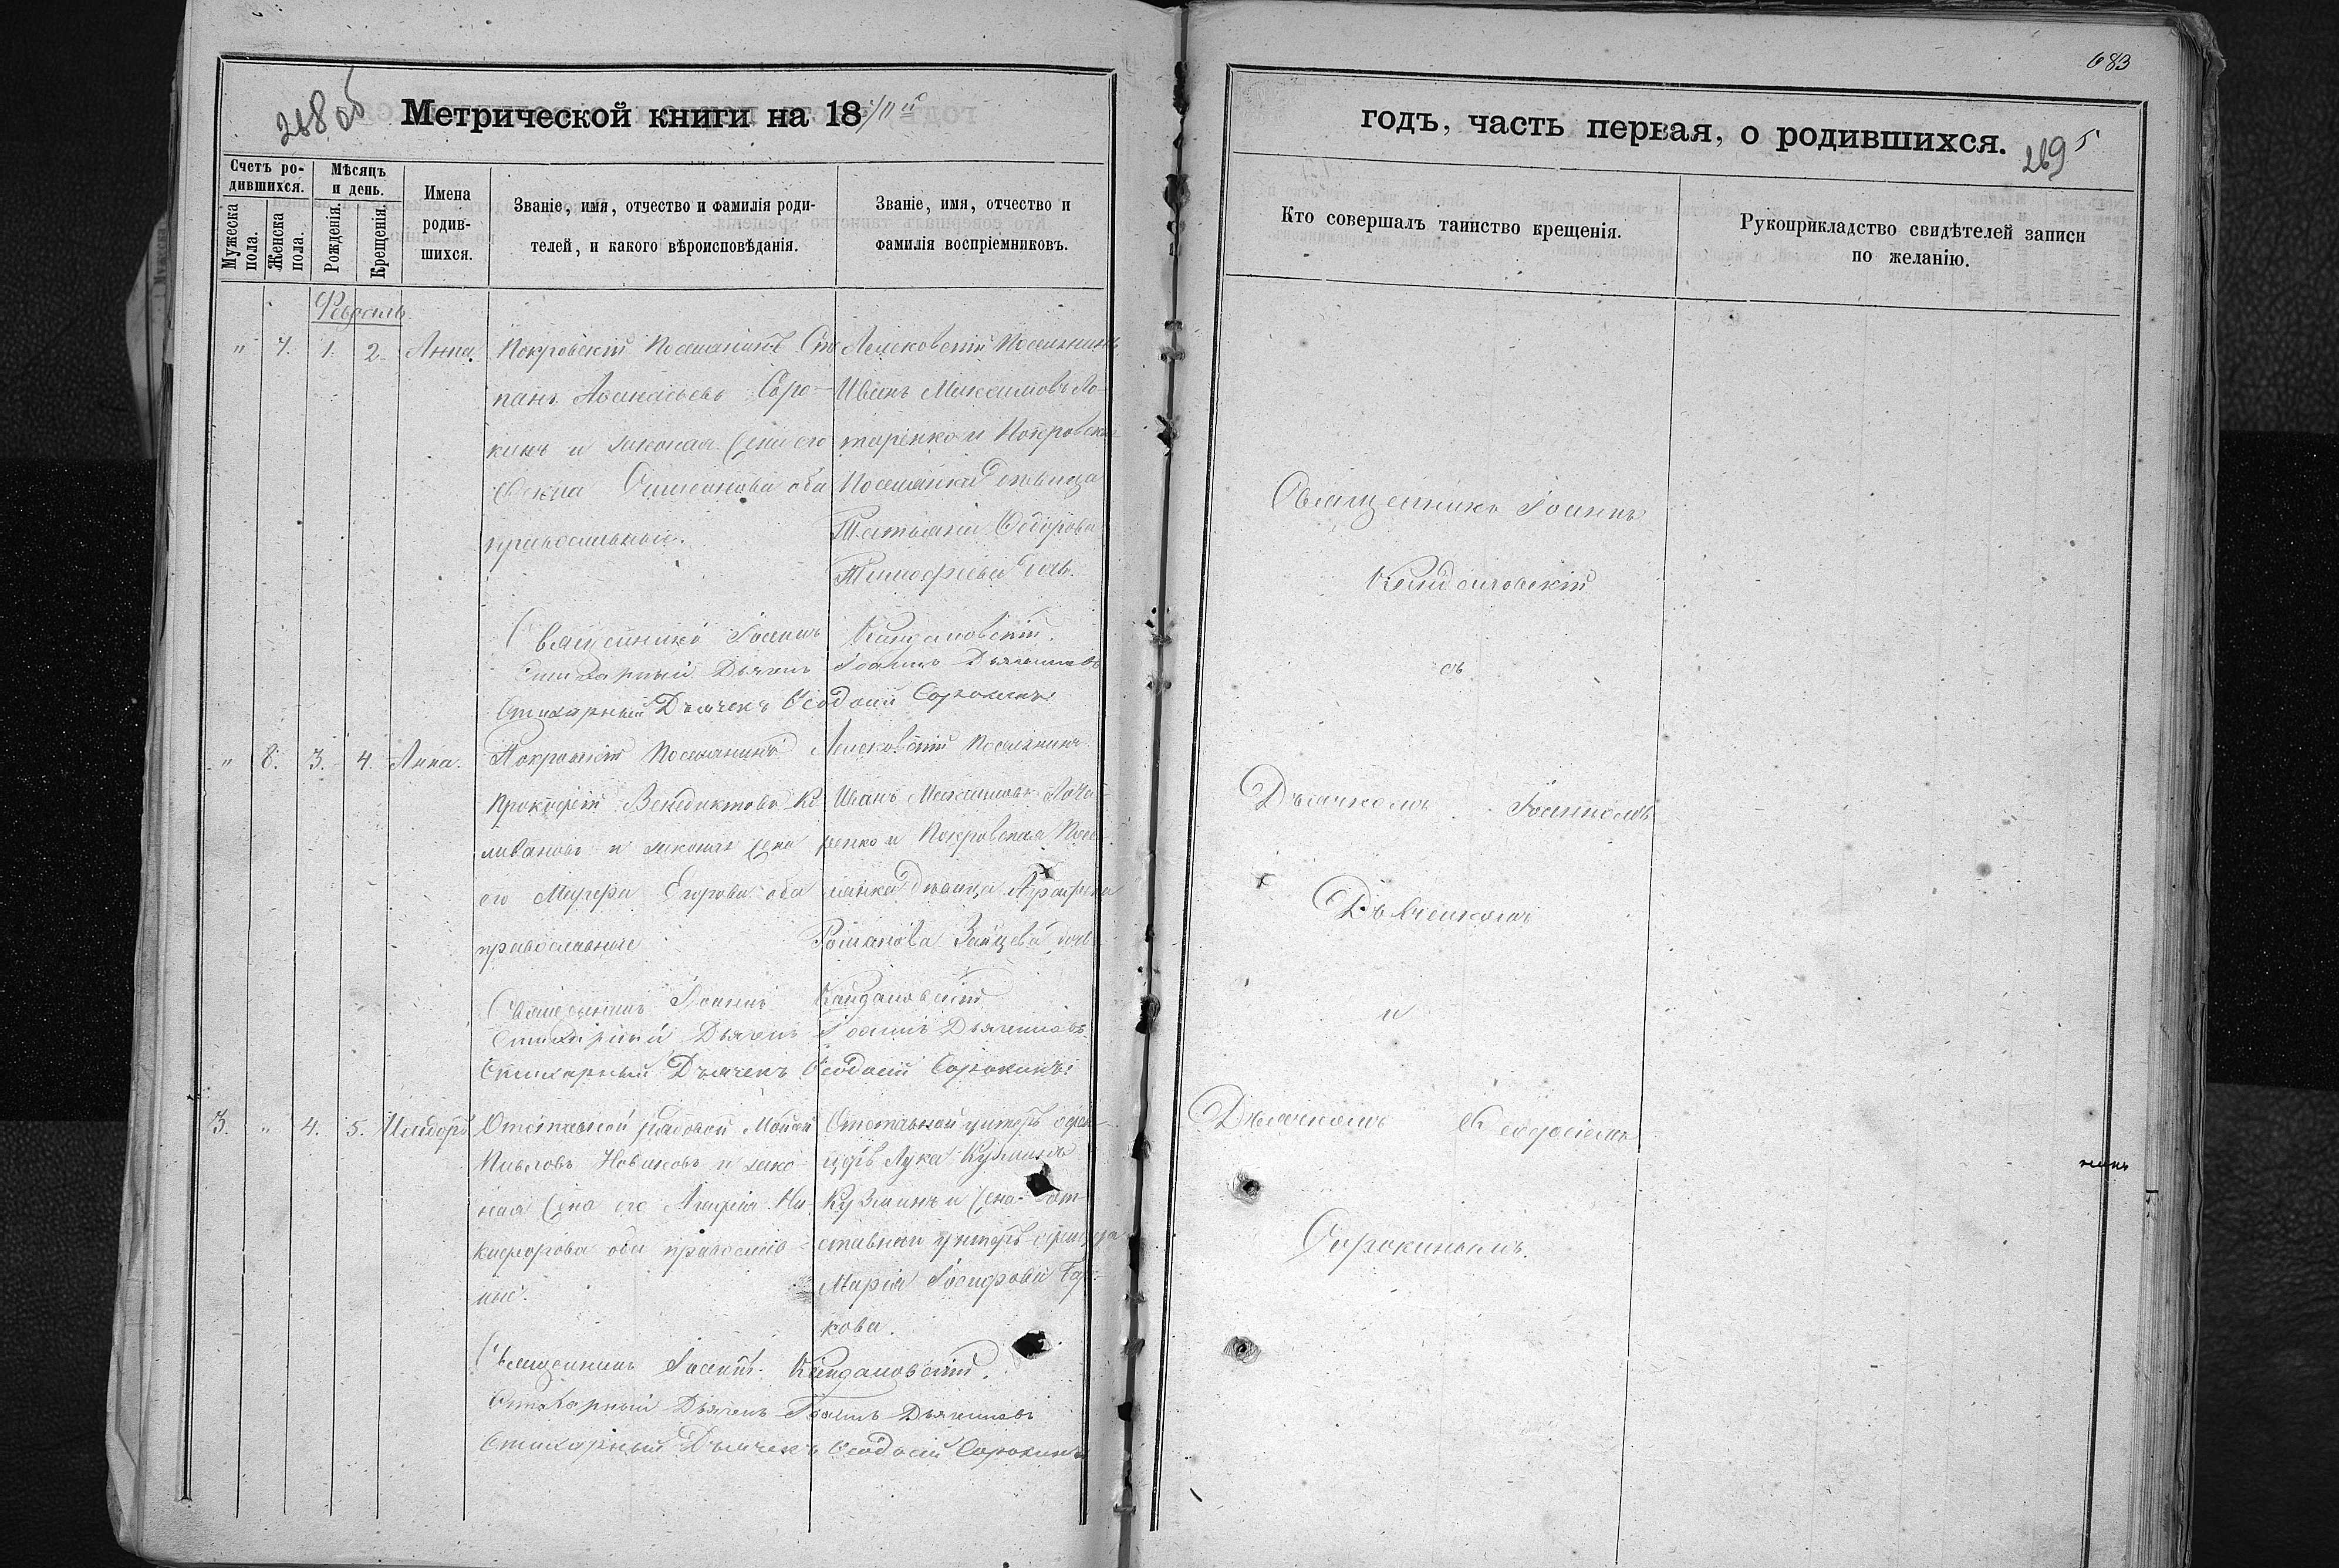 268 об
Метрической книги на 18
Счетъ ро-
дившихся.
Мужеска
пола.
Женска
пола.
Мѣсяцъ
и день.
Рожденія.
Крещенія.
Имена
родив-
шихся.
Званіе, имя, отчество и фамилія роди-
телей, и какого вѣроисповѣданія.
Званіе, имя, отчество и
фамилія воспріемниковъ.
Февраль
" 7. 1. 2. Анна.
Покровскій Поселянинъ Сте
панъ Аѳанасьевъ Соро-
кинъ и законая жена его
Симеонова оба
православные.
Поселянинъ
Иванъ Максимовъ
и Покровская
Поселянка дѣвица
Татьяна Ѳедорова
Тимофѣева дочь.
Священникъ Іоаннъ Кандановскій.
Стихарный Дьячекъ Іоаннъ Дьяченковъ
Стихарный Дьячекъ Ѳеодосій Сорокинъ
" 8. 3. 4. Анна.
Покровскій Поселянинъ
Прокофій Венедиктовъ Се
ливановъ и законая жена
его Марфа Егорова оба
православные
Поселянинъ
Иванъ Максимовъ
ренко и Покровская Посе
лянка дѣвица Аграфена
Романова Зайцева дочь
Священникъ Іоаннъ Кандановскій
Стихарный Дьячекъ Іоаннъ Дьяченковъ
Стихарный Дьячекъ Ѳеодосій Сорокинъ
3. " 4. 5. Исидоръ
Отставной рядовой
Павловъ Новиковъ и зако
ная жена его Марія Ни
кифорова оба православ
ные.
Отставной унтеръ офи-
церъ Лука Кузминъ
Кузминъ и жена от-
ставнаго унтеръ офицера
Марія Іосифова
кова.
Священникъ Іоаннъ Кандановскій.
Стихарный Дьячекъ Іоаннъ Дьяченковъ
Стихарный Дьячекъ Ѳеодосій Сорокинъ
683
годъ, часть первая, о родившихся.
269
Кто совершалъ таинство крещенія.
Рукоприкладство свидѣтелей записи
по желанію.
Священникъ Іоаннъ
Кандановскій
съ
Дьячкомъ Іоанномъ
Дьяченковымъ
и
Дьячкомъ Ѳеодосіемъ
Сорокинымъ.